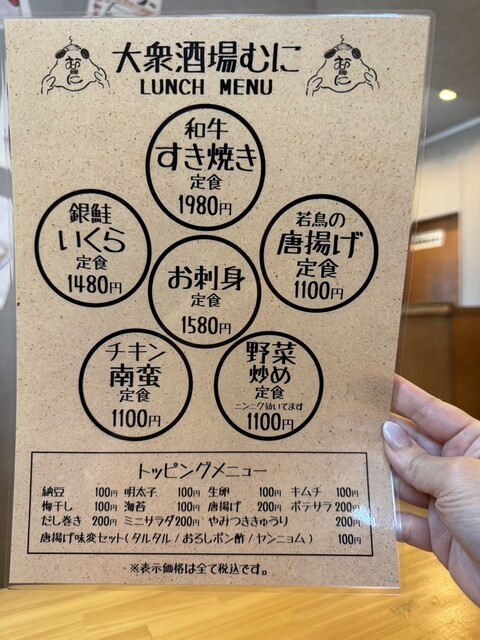 大衆酒場むに
LUNCH MENU
和牛
すき焼き
定食
1980円
銀鮭
いくら
定食
1480円
若鳥の
唐揚げ
定食
1100円
お刺身
定食
1580円
チキン
南蛮
定食
1100円
野菜
炒め
定食
ニンニク効いてます
1100円
トッピングメニュー
納豆 100円 明太子 100円 生卵 100円 キムチ 100円
梅干し 100円 海苔 100円 唐揚げ 200円 ポテサラ 200円
だし巻き 200円 ミニサラダ 200円 やみつききゅうり 200円
唐揚げ味変セット(タルタル/おろしポン酢/ヤンニョム) 100円
※表示価格は全て税込です。